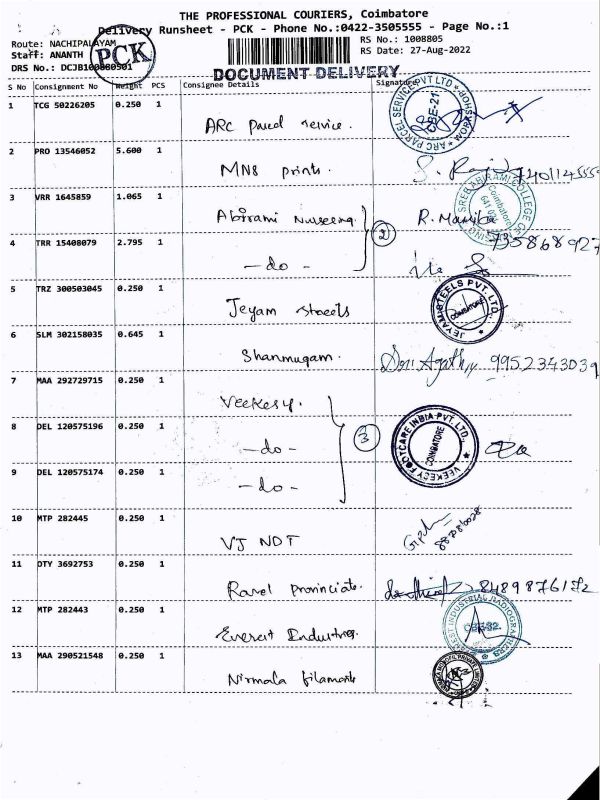 THE PROFESSIONAL COURIERS, Coimbatore
Delivery Runsheet - PCK - Phone No.:0422-3505555 - Page No.:1
Route: NACHIPALAYAM
RS No.: 1008805
Staff: ANANTH
PCK
RS Date: 27-Aug-2022
DRS No.: DCJB
DOCUMENT DELIVERY
S No Consignment No Weight PCS Consignee Details Signature
1 TCG 50226205 0.250 1
ARC Parcel service.
ARC PARCEL SERVICE PVT LTD
CBE-21
2 PRO 13546052 5.600 1
MNS prints.
3 VRR 1645859 1.065 1
Abirami Nurseing
SREE ABIRAMI COLLEGE OF
Coimbatore
②
4 TRR 15408079 2.795 1
- do -
5 TRZ 300503045 0.250 1
Jeyam steels
JEYAM STEELS PVT. LTD.
COIMBATORE
6 SLM 302158035 0.645 1
Shanmugam.
9952343039
7 MAA 292729715 0.250 1
Veekesy.
8 DEL 120575196 0.250 1
- do -
③
VEEKECY FOOTCARE INDIA PVT. LTD.,
COIMBATORE
9 DEL 120575174 0.250 1
- do -
10 MTP 282445 0.250 1
VJ NDT
11 OTY 3692753 0.250 1
8489876172
12 MTP 282443 0.250 1
Everest Industries.
INDUSTRIAL RADIOGRAPHERS
13 MAA 290521548 0.250 1
Nirmala filaments